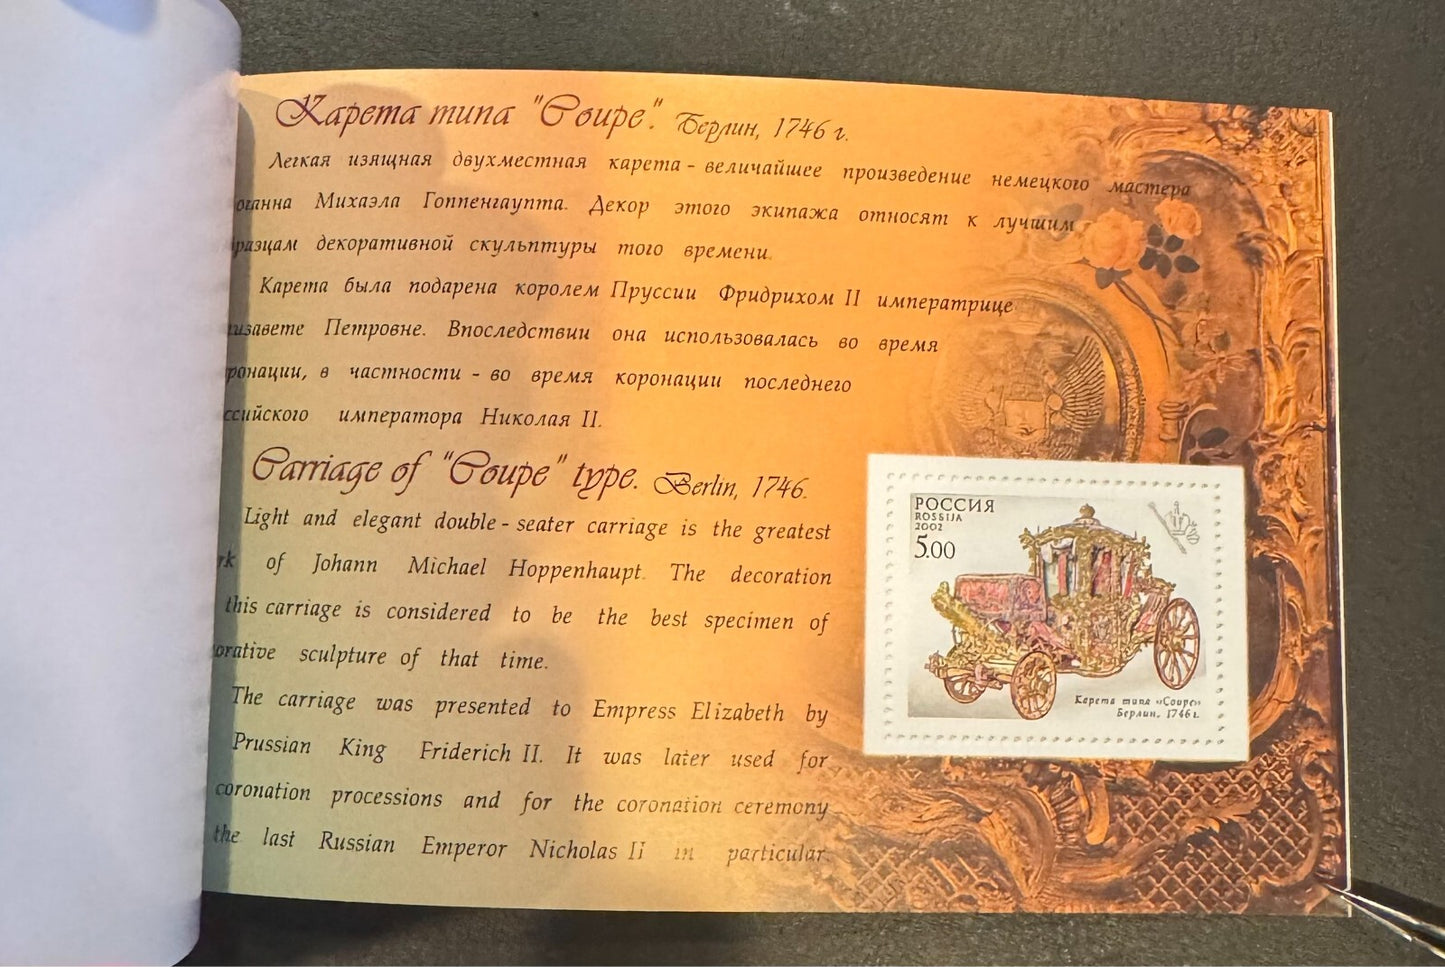 Карета типа "Coupe". Берлин, 1746 г.
Легкая изящная двухместная карета - величайшее произведение немецкого мастера
оганна Михаэла Гоппенгаупта. Декор этого экипажа относят к лучшим
разцам декоративной скульптуры того времени.
Карета была подарена королем Пруссии Фридрихом II императрице
изавете Петровне. Впоследствии она использовалась во время
ронации, в частности - во время коронации последнего
ссийского императора Николая II.
Carriage of "Coupe" type. Berlin, 1746.
Light and elegant double - seater carriage is the greatest
rk of Johann Michael Hoppenhaupt. The decoration
this carriage is considered to be the best specimen of
orative sculpture of that time.
The carriage was presented to Empress Elizabeth by
Prussian King Friderich II. It was later used for
coronation processions and for the coronation ceremony
the last Russian Emperor Nicholas II in particular.
РОССИЯ
ROSSIJA
2002
5.00
Карета типа «Coupe»
Берлин, 1746 г.